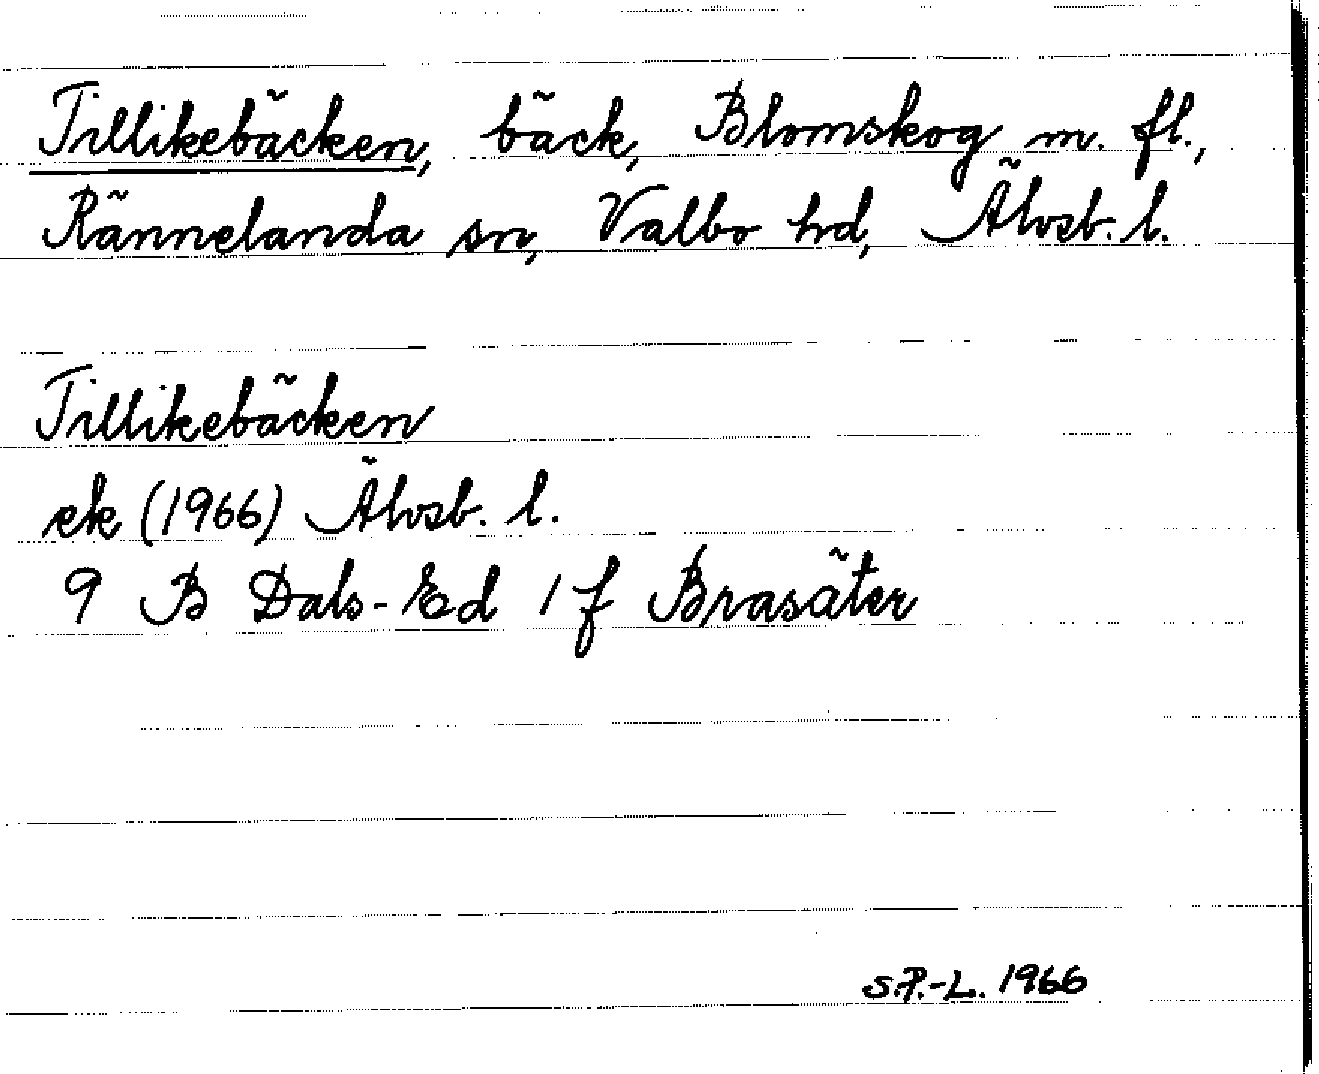 Tillikebäcken, bäck, Blomskog m. fl.,
Rännelanda sn, Valbo hd, Älvsb. l.
Tillikebäcken
ek (1966) Älvsb. l.
9 B Dals-Ed 1 f Brasäter
S.P.-L. 1966